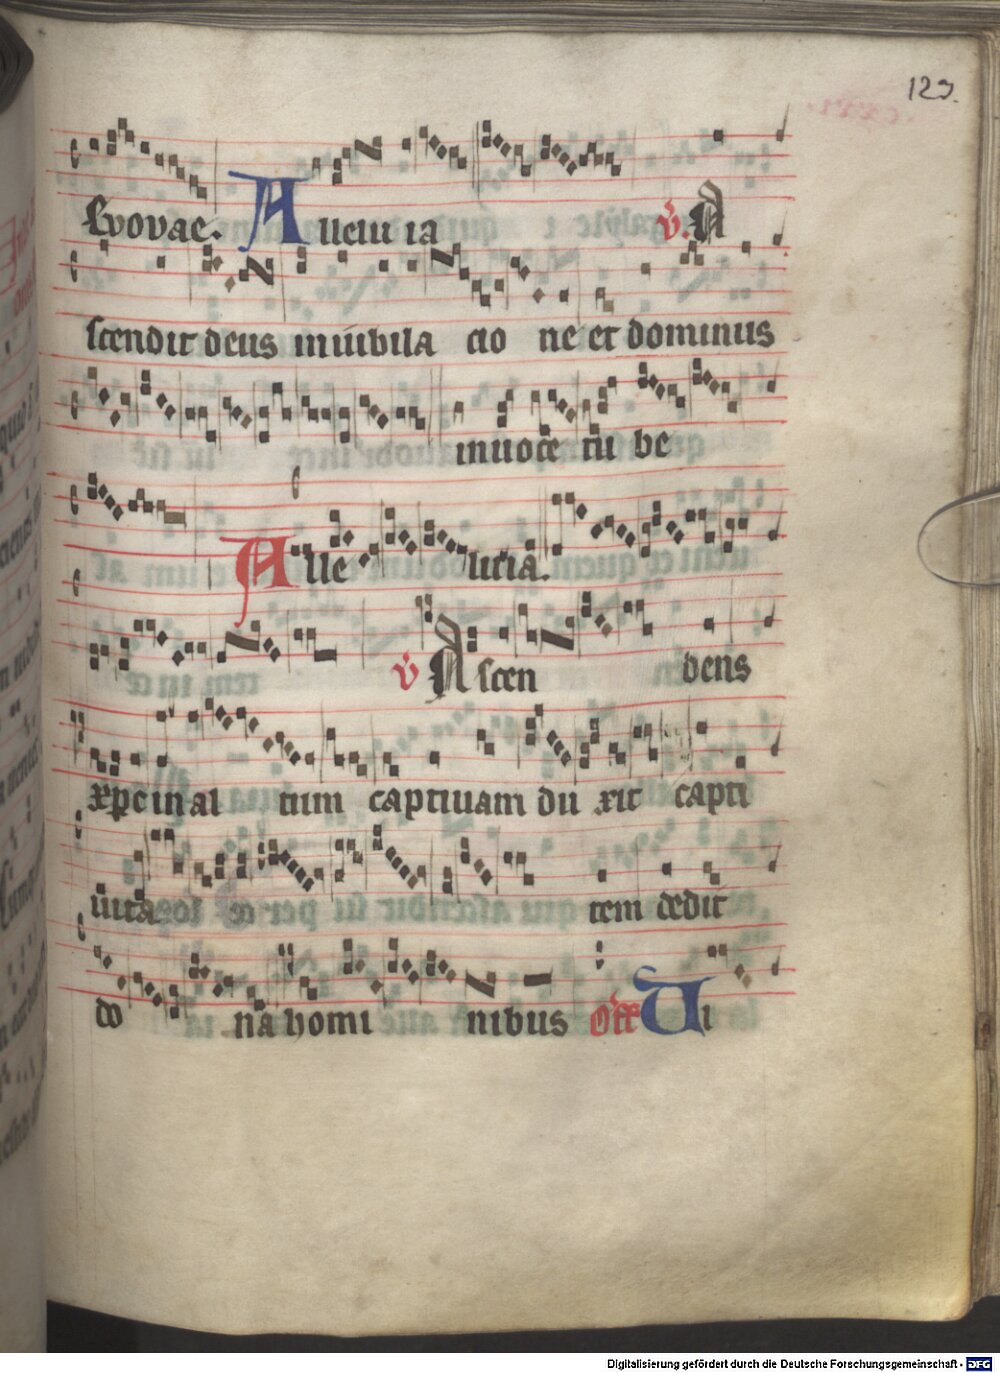 123.
Evovae. Alleluia ℣. A
scendit deus in iubila cio ne et dominus
in uoce tu be
Alle luia.
℣ Ascen dens
xp̄c in al tum captiuam du xit capti
uita tem dedit
do na homi nibus Off Ui
Digitalisierung gefördert durch die Deutsche Forschungsgemeinschaft - DFG